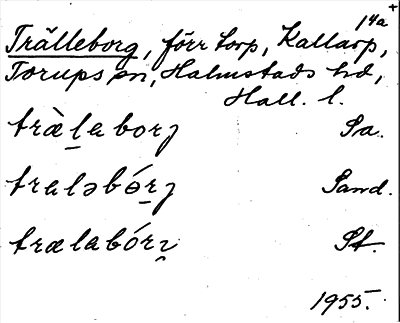 14a +
Trälleborg, förr torp, Kallarp,
Torups sn, Halmstads hd,
Hall. l.
træ̀l̠a borj Sa.
traləbór̠j Sand.
trælabórɂ St.
1955.